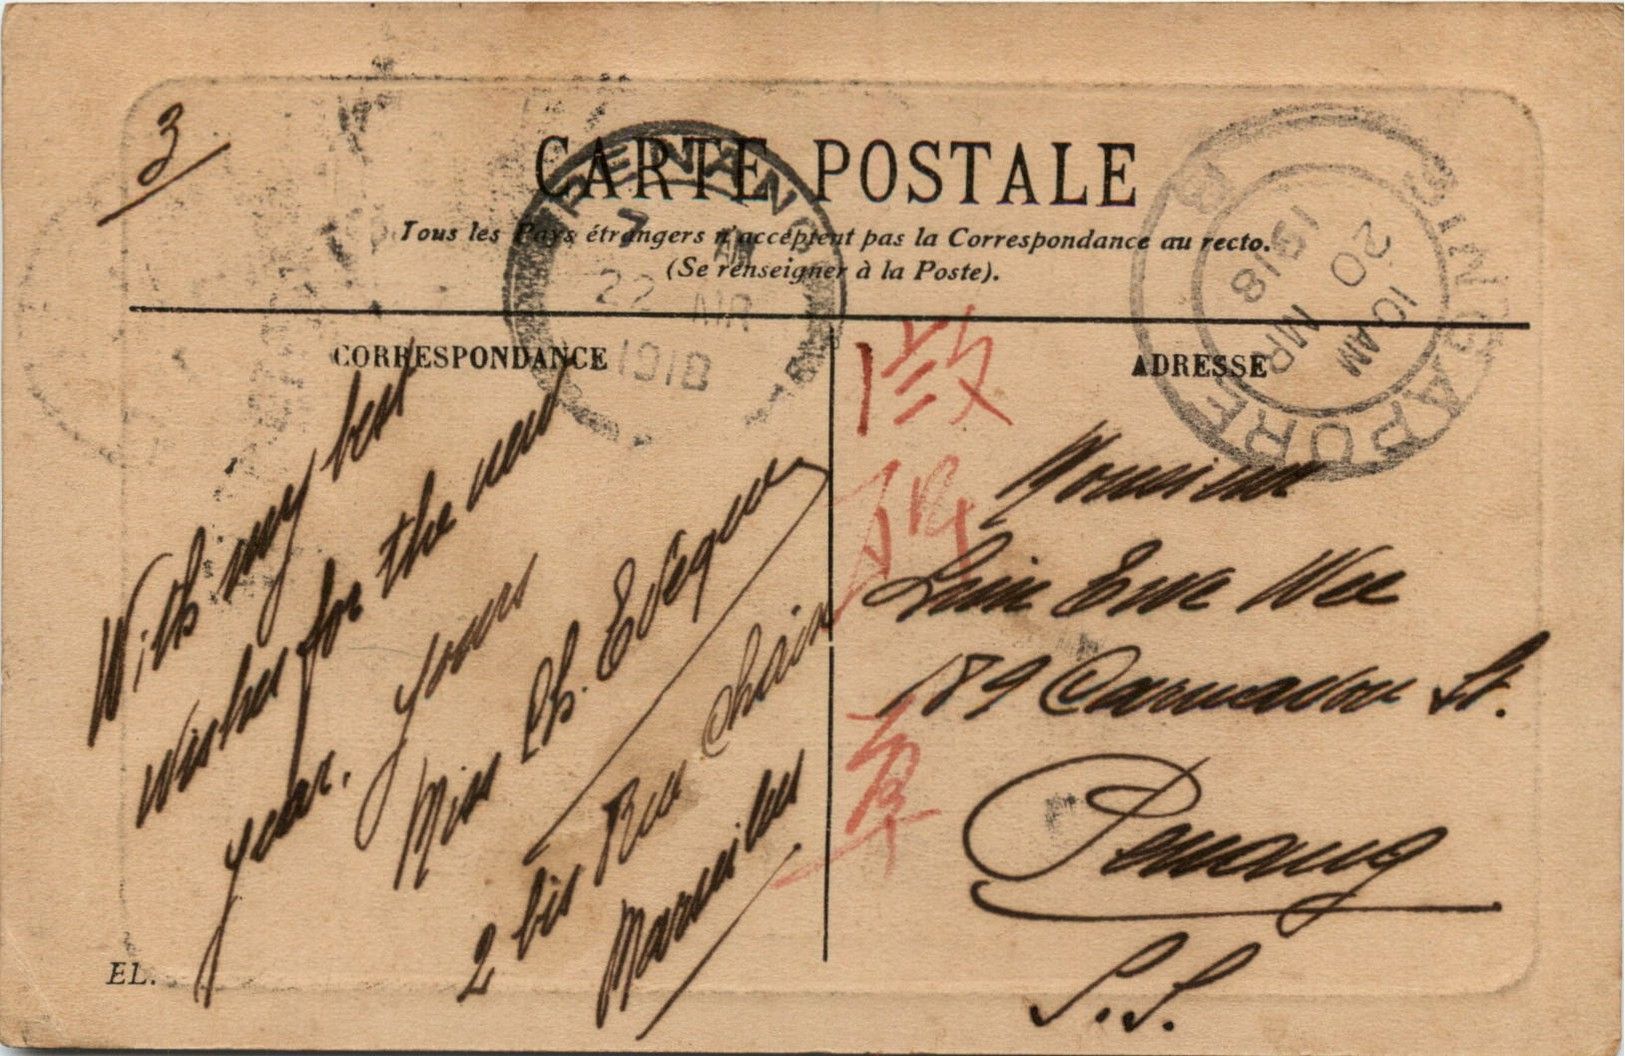 3
CARTE POSTALE
Tous les Pays étrangers n'acceptent pas la Correspondance au recto.
(Se renseigner à la Poste).
PENANG
7 AM
22 MR
1918
SINGAPORE B
10 AM
20 MR
1918
CORRESPONDANCE
ADRESSE
With my best
wishes for the new
year. Yours
Miss Ch. Evêque
2 bis Rue
Marseilles
Monsieur
Lim Eow Wee
189 Carnarvon St.
Penang
S.S.
EL.